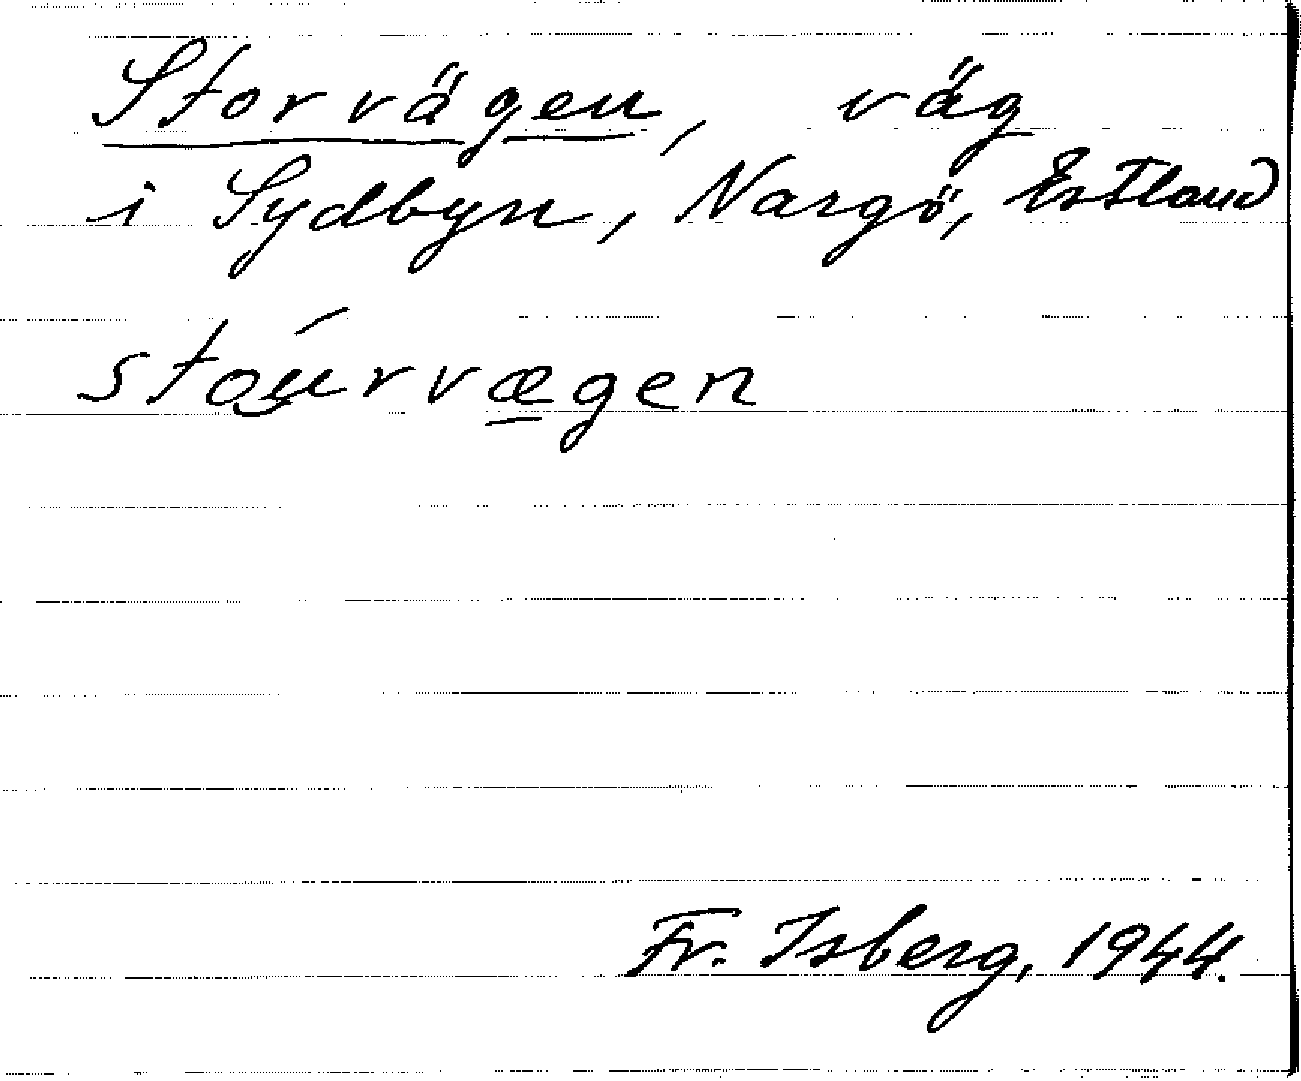 Storvägen, väg
i Sydbyn, Nargö, Estland
stóu̯rvæ̱gen
Fr. Isberg, 1944.